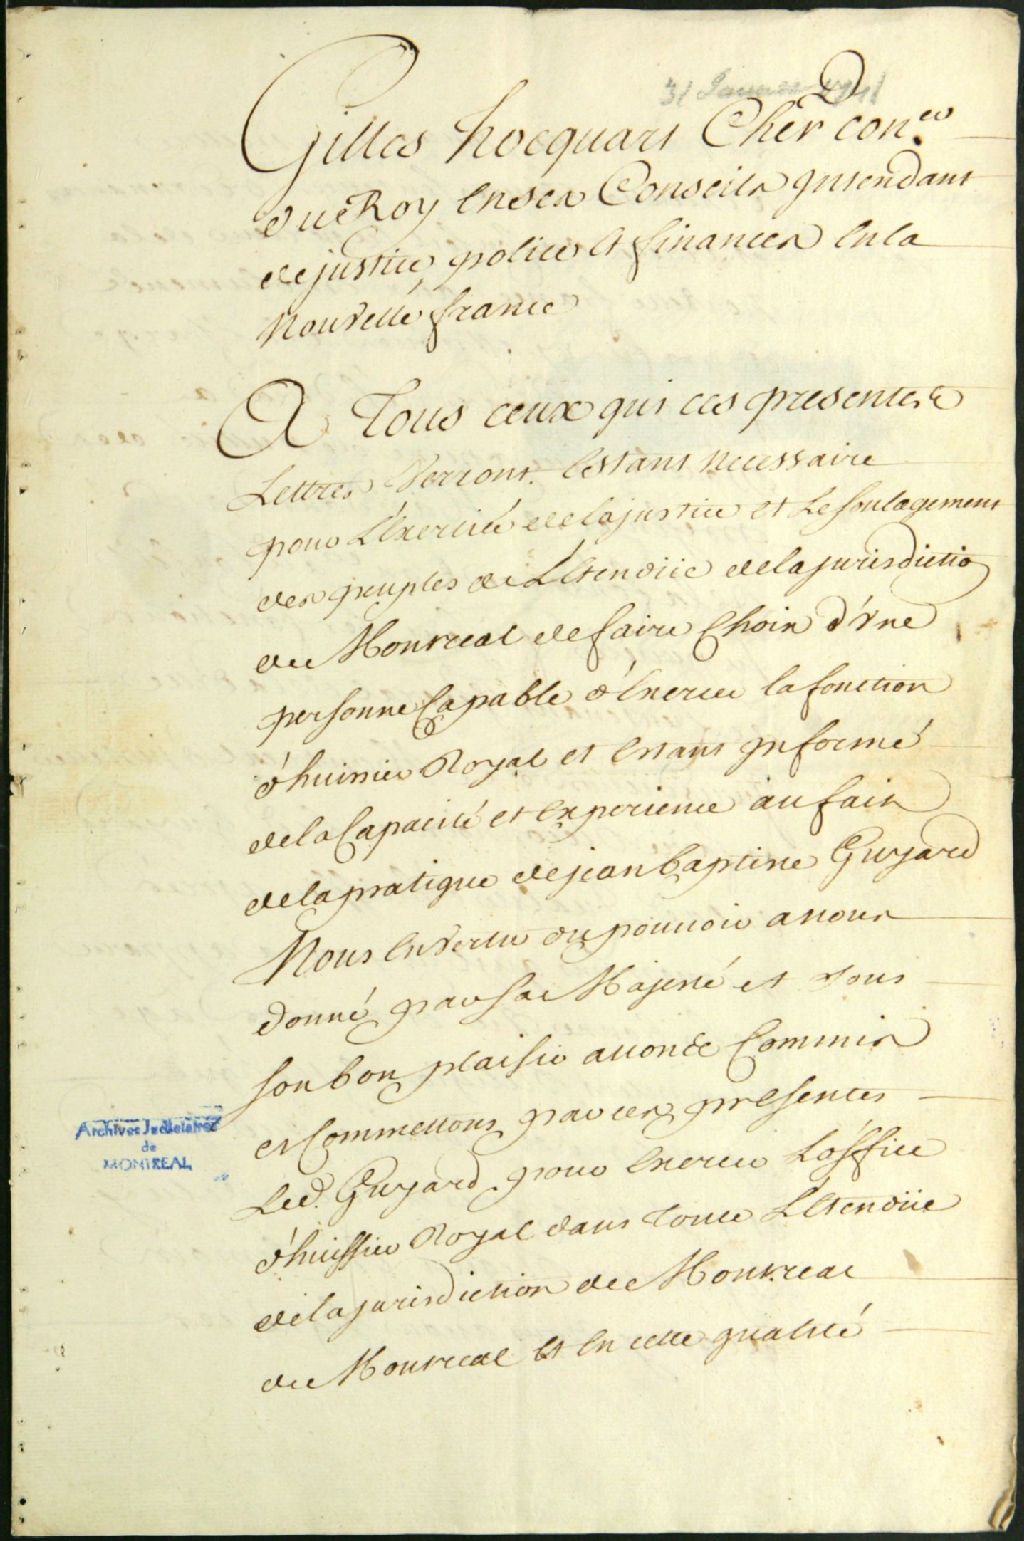 31 Janvier 1741
Gilles hocquart Cher con.er
du Roy En ses Conseils Intendant
de justice, police Et finances En la
Nouvelle france
A Tous ceux qui ces presentes
Lettres Verront. Estant necessaire
pour L'Exercice de la justice et Le soulagement
des peuples de L'Etendüe de la jurisdiction
de Montreal de faire Choix d'Vne
personne Capable d'Exercer la fonction
d'huissier Royal et Estant Informé
de la Capacité et Experience au fait
de la pratique de jean baptiste Guyard
Nous En Vertu du pouvoir a nous
donné par sa Majesté et sous
son bon plaisir auons Commis
et Commettons par ces presentes
Led. Guyard pour Exercer L'office
d'huissier Royal dans toute L'Etendüe
de la jurisdiction de Montreal
de Montreal Et En cette qualité
Archives Judiciaires
de
MONTREAL